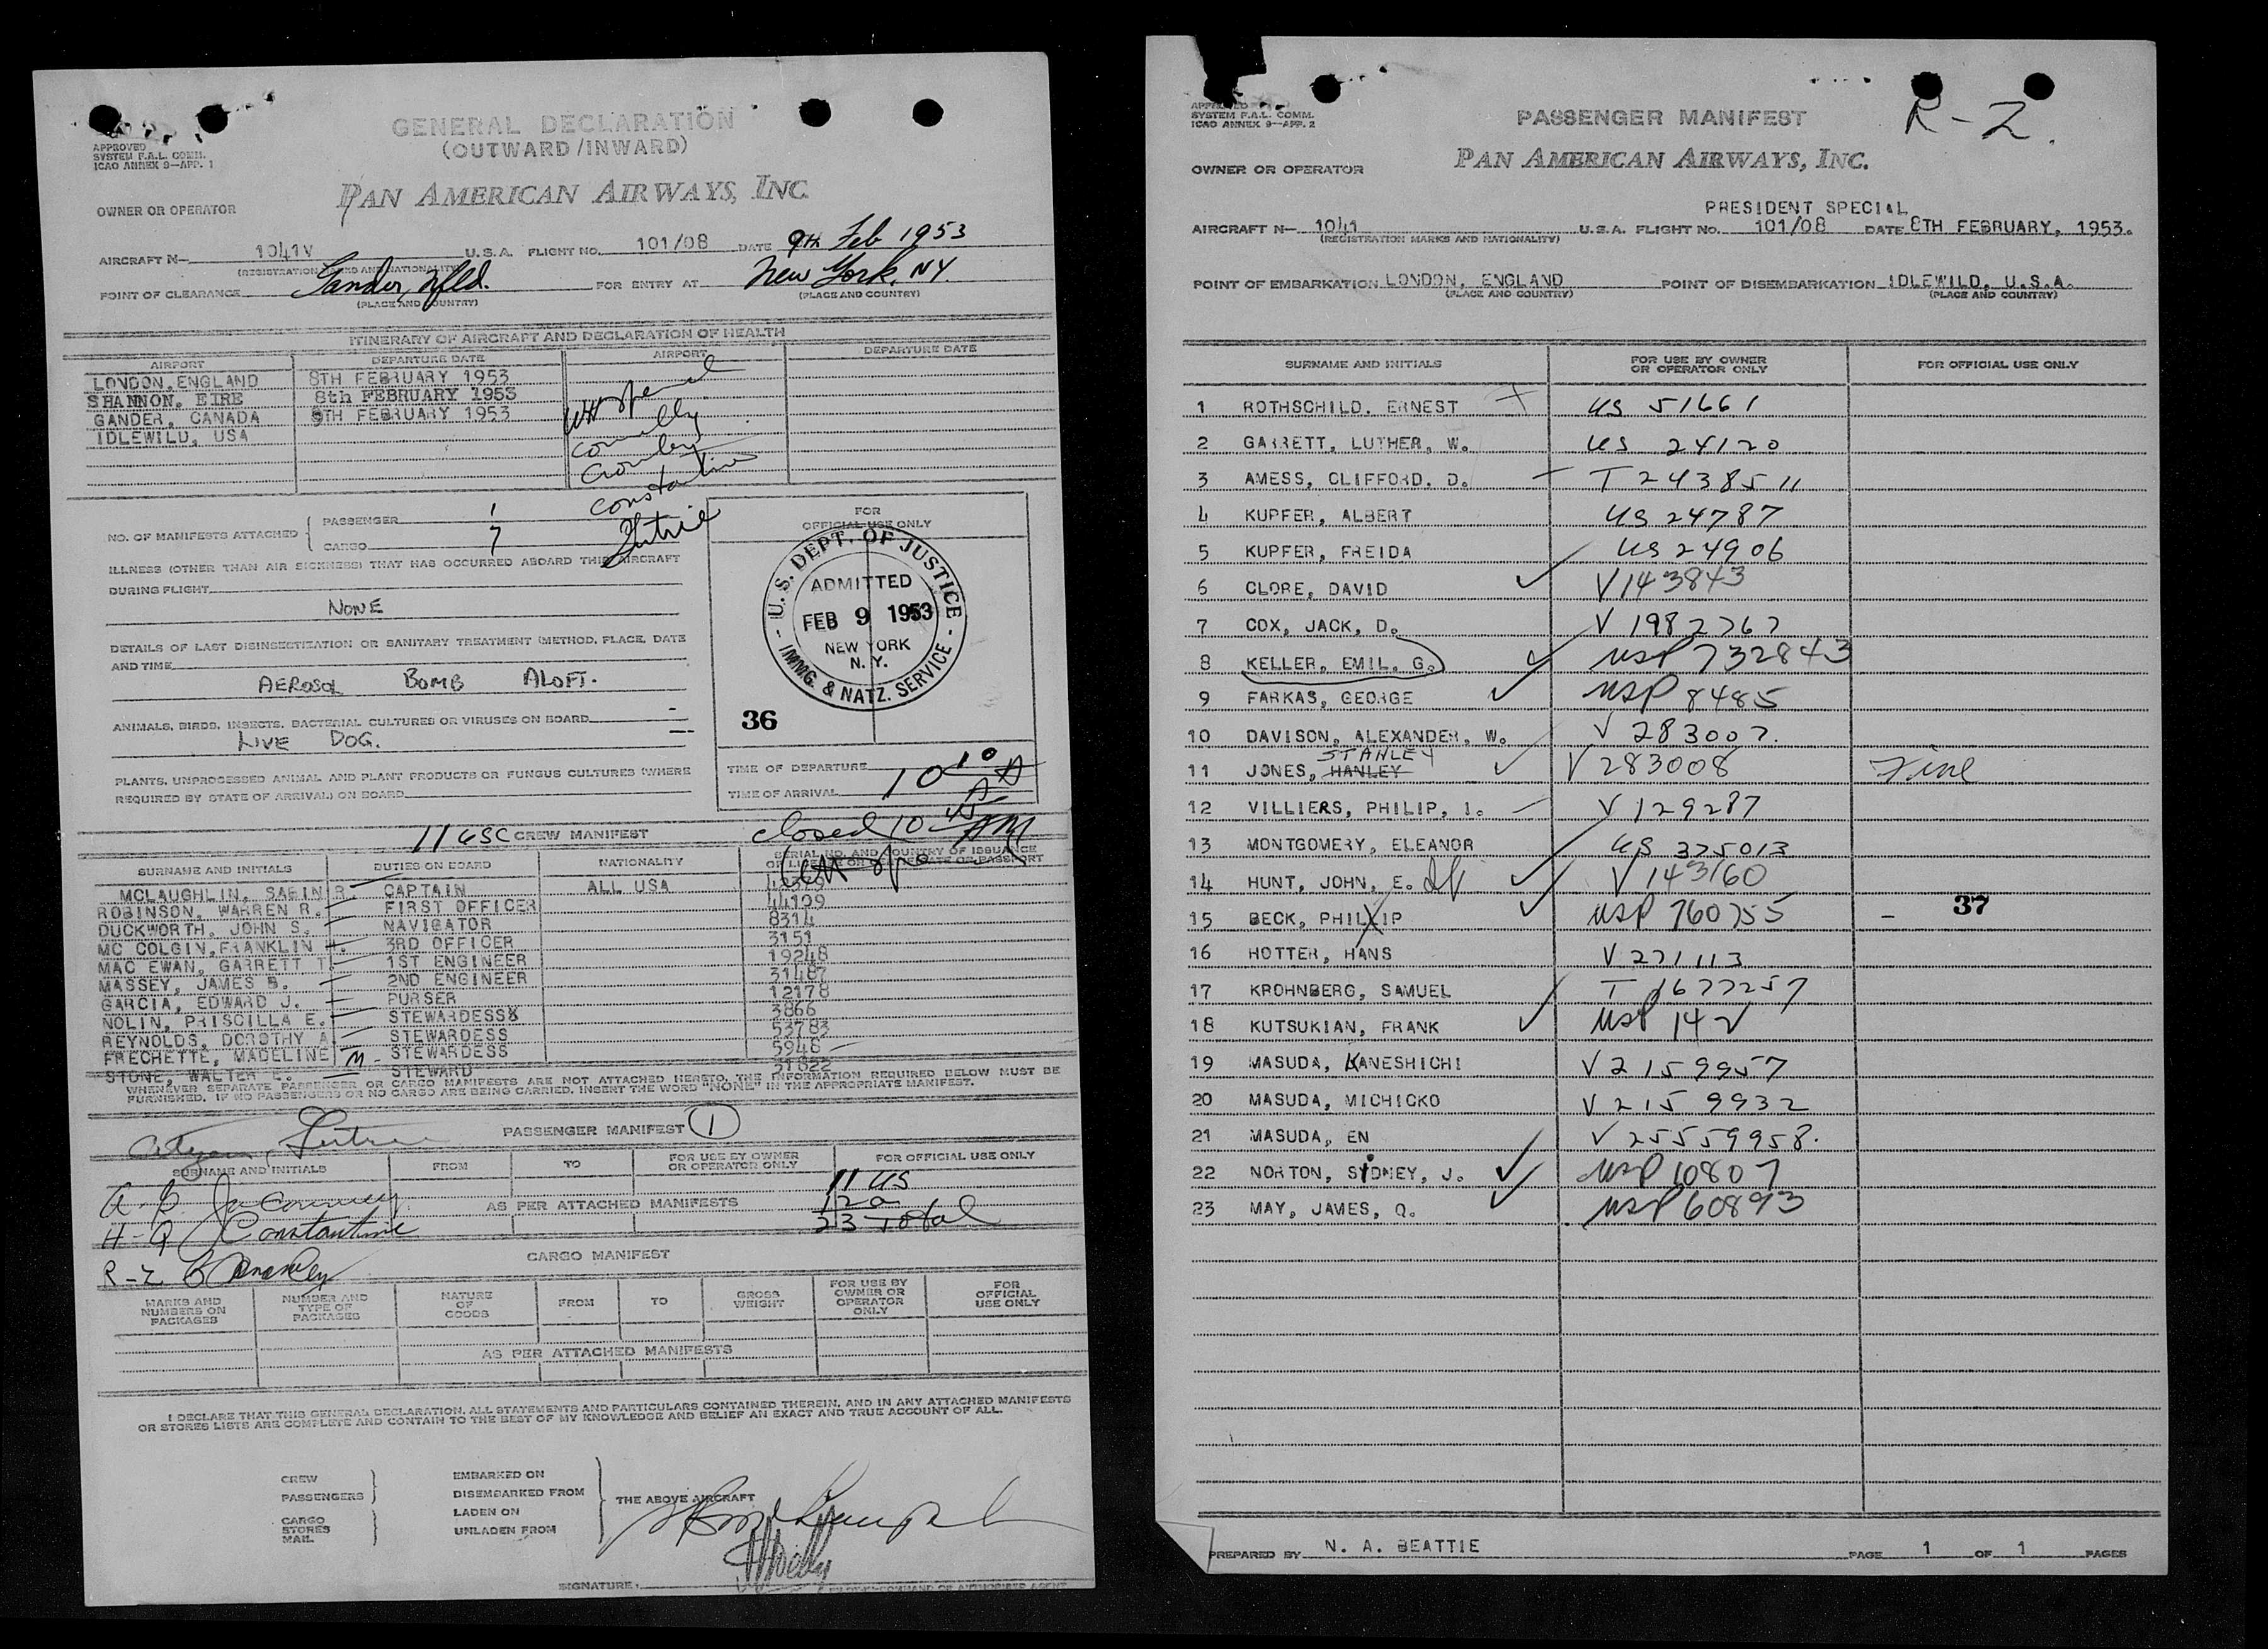 APPROVED
SYSTEM F.A.L. COMM.
ICAO ANNEX 9—APP. 1
GENERAL DECLARATION
(OUTWARD/INWARD)
PAN AMERICAN AIRWAYS, INC.
OWNER OR OPERATOR
AIRCRAFT N— 1041V U.S.A. FLIGHT NO. 101/08 DATE 9th Feb 1953
(REGISTRATION MARKS AND NATIONALITY)
POINT OF CLEARANCE Gander, Nfld. FOR ENTRY AT New York, NY.
(PLACE AND COUNTRY) (PLACE AND COUNTRY)
ITINERARY OF AIRCRAFT AND DECLARATION OF HEALTH
AIRPORT DEPARTURE DATE AIRPORT DEPARTURE DATE
LONDON, ENGLAND 8TH FEBRUARY 1953
SHANNON, EIRE 8th FEBRUARY 1953
GANDER, CANADA 9TH FEBRUARY 1953
IDLEWILD, USA
Connelly
Crowley
Constantine
NO. OF MANIFESTS ATTACHED PASSENGER 1
CARGO 7
ILLNESS (OTHER THAN AIR SICKNESS) THAT HAS OCCURRED ABOARD THIS AIRCRAFT
DURING FLIGHT
NONE
DETAILS OF LAST DISINSECTIZATION OR SANITARY TREATMENT (METHOD, PLACE, DATE
AND TIME
AEROSOL BOMB ALOFT.
ANIMALS, BIRDS, INSECTS, BACTERIAL CULTURES OR VIRUSES ON BOARD
LIVE DOG.
PLANTS, UNPROCESSED ANIMAL AND PLANT PRODUCTS OR FUNGUS CULTURES (WHERE
REQUIRED BY STATE OF ARRIVAL) ON BOARD
FOR
OFFICIAL USE ONLY
U.S. DEPT. OF JUSTICE
ADMITTED
FEB 9 1953
NEW YORK
N. Y.
IMMG. & NATZ. SERVICE
36
TIME OF DEPARTURE
TIME OF ARRIVAL 10 10 A
closed 10 45 AM
11 USC CREW MANIFEST
SURNAME AND INITIALS DUTIES ON BOARD NATIONALITY SERIAL NO. AND COUNTRY OF ISSUANCE
OF LICENSE OR CERTIFICATE OR PASSPORT
MCLAUGHLIN, SABIN R. CAPTAIN ALL USA
ROBINSON, WARREN R. FIRST OFFICER 44199
DUCKWORTH, JOHN S. NAVIGATOR 8314
MC COLGIN, FRANKLIN H. 3RD OFFICER 3151
MAC EWAN, GARRETT T. 1ST ENGINEER 19248
MASSEY, JAMES B. 2ND ENGINEER 31487
GARCIA, EDWARD J. PURSER 12178
NOLIN, PRISCILLA E. STEWARDESS 3866
REYNOLDS, DOROTHY A STEWARDESS 53783
FRECHETTE, MADELINE M- STEWARDESS 5948
STONE, WALTER E. STEWARD 31822
WHENEVER SEPARATE PASSENGER OR CARGO MANIFESTS ARE NOT ATTACHED HERETO, THE INFORMATION REQUIRED BELOW MUST BE
FURNISHED. IF NO PASSENGERS OR NO CARGO ARE BEING CARRIED, INSERT THE WORD "NONE" IN THE APPROPRIATE MANIFEST.
PASSENGER MANIFEST 1
SURNAME AND INITIALS FROM TO FOR USE BY OWNER
OR OPERATOR ONLY FOR OFFICIAL USE ONLY
11 US
AS PER ATTACHED MANIFESTS 12 a
23 Total
H-Q Constantine
R-Z
CARGO MANIFEST
MARKS AND
NUMBERS ON
PACKAGES NUMBER AND
TYPE OF
PACKAGES NATURE
OF
GOODS FROM TO GROSS
WEIGHT FOR USE BY
OWNER OR
OPERATOR
ONLY FOR
OFFICIAL
USE ONLY
AS PER ATTACHED MANIFESTS
I DECLARE THAT THIS GENERAL DECLARATION, ALL STATEMENTS AND PARTICULARS CONTAINED THEREIN, AND IN ANY ATTACHED MANIFESTS
OR STORES LISTS ARE COMPLETE AND CONTAIN TO THE BEST OF MY KNOWLEDGE AND BELIEF AN EXACT AND TRUE ACCOUNT OF ALL.
CREW
PASSENGERS
CARGO
STORES
MAIL
EMBARKED ON
DISEMBARKED FROM
LADEN ON
UNLADEN FROM
THE ABOVE AIRCRAFT
SIGNATURE:
APPROVED
SYSTEM F.A.L. COMM.
ICAO ANNEX 9—APP. 2
PASSENGER MANIFEST
R-Z.
OWNER OR OPERATOR PAN AMERICAN AIRWAYS, INC.
PRESIDENT SPECIAL
AIRCRAFT N— 1041 U.S.A. FLIGHT NO. 101/08 DATE 8TH FEBRUARY, 1953.
(REGISTRATION MARKS AND NATIONALITY)
POINT OF EMBARKATION LONDON, ENGLAND POINT OF DISEMBARKATION IDLEWILD, U.S.A.
(PLACE AND COUNTRY) (PLACE AND COUNTRY)
SURNAME AND INITIALS FOR USE BY OWNER
OR OPERATOR ONLY FOR OFFICIAL USE ONLY
1 ROTHSCHILD, ERNEST US 51661
2 GARRETT, LUTHER, W. US 24120
3 AMESS, CLIFFORD, D. T 2438511
4 KUPFER, ALBERT US 24787
5 KUPFER, FREIDA US 24906
6 CLORE, DAVID V143843
7 COX, JACK, D. V 1982767
8 KELLER, EMIL, G. USP 732843
9 FARKAS, GEORGE USP 8485
10 DAVISON, ALEXANDER, W. V 283007.
STANLEY
11 JONES, HANLEY V 283008
12 VILLIERS, PHILIP, I. V 129287
13 MONTGOMERY, ELEANOR US 325013
14 HUNT, JOHN, E. V 143160
15 BECK, PHILLIP USP 760755 37
16 HOTTER, HANS V 271113
17 KROHNBERG, SAMUEL T 1677257
18 KUTSUKIAN, FRANK USP 142
19 MASUDA, KANESHICHI V 2159957
20 MASUDA, MICHICKO V 2159932
21 MASUDA, EN V 25559958.
22 NORTON, SIDNEY, J. USP 10807
23 MAY, JAMES, Q. USP 60893
PREPARED BY N. A. BEATTIE PAGE 1 OF 1 PAGES